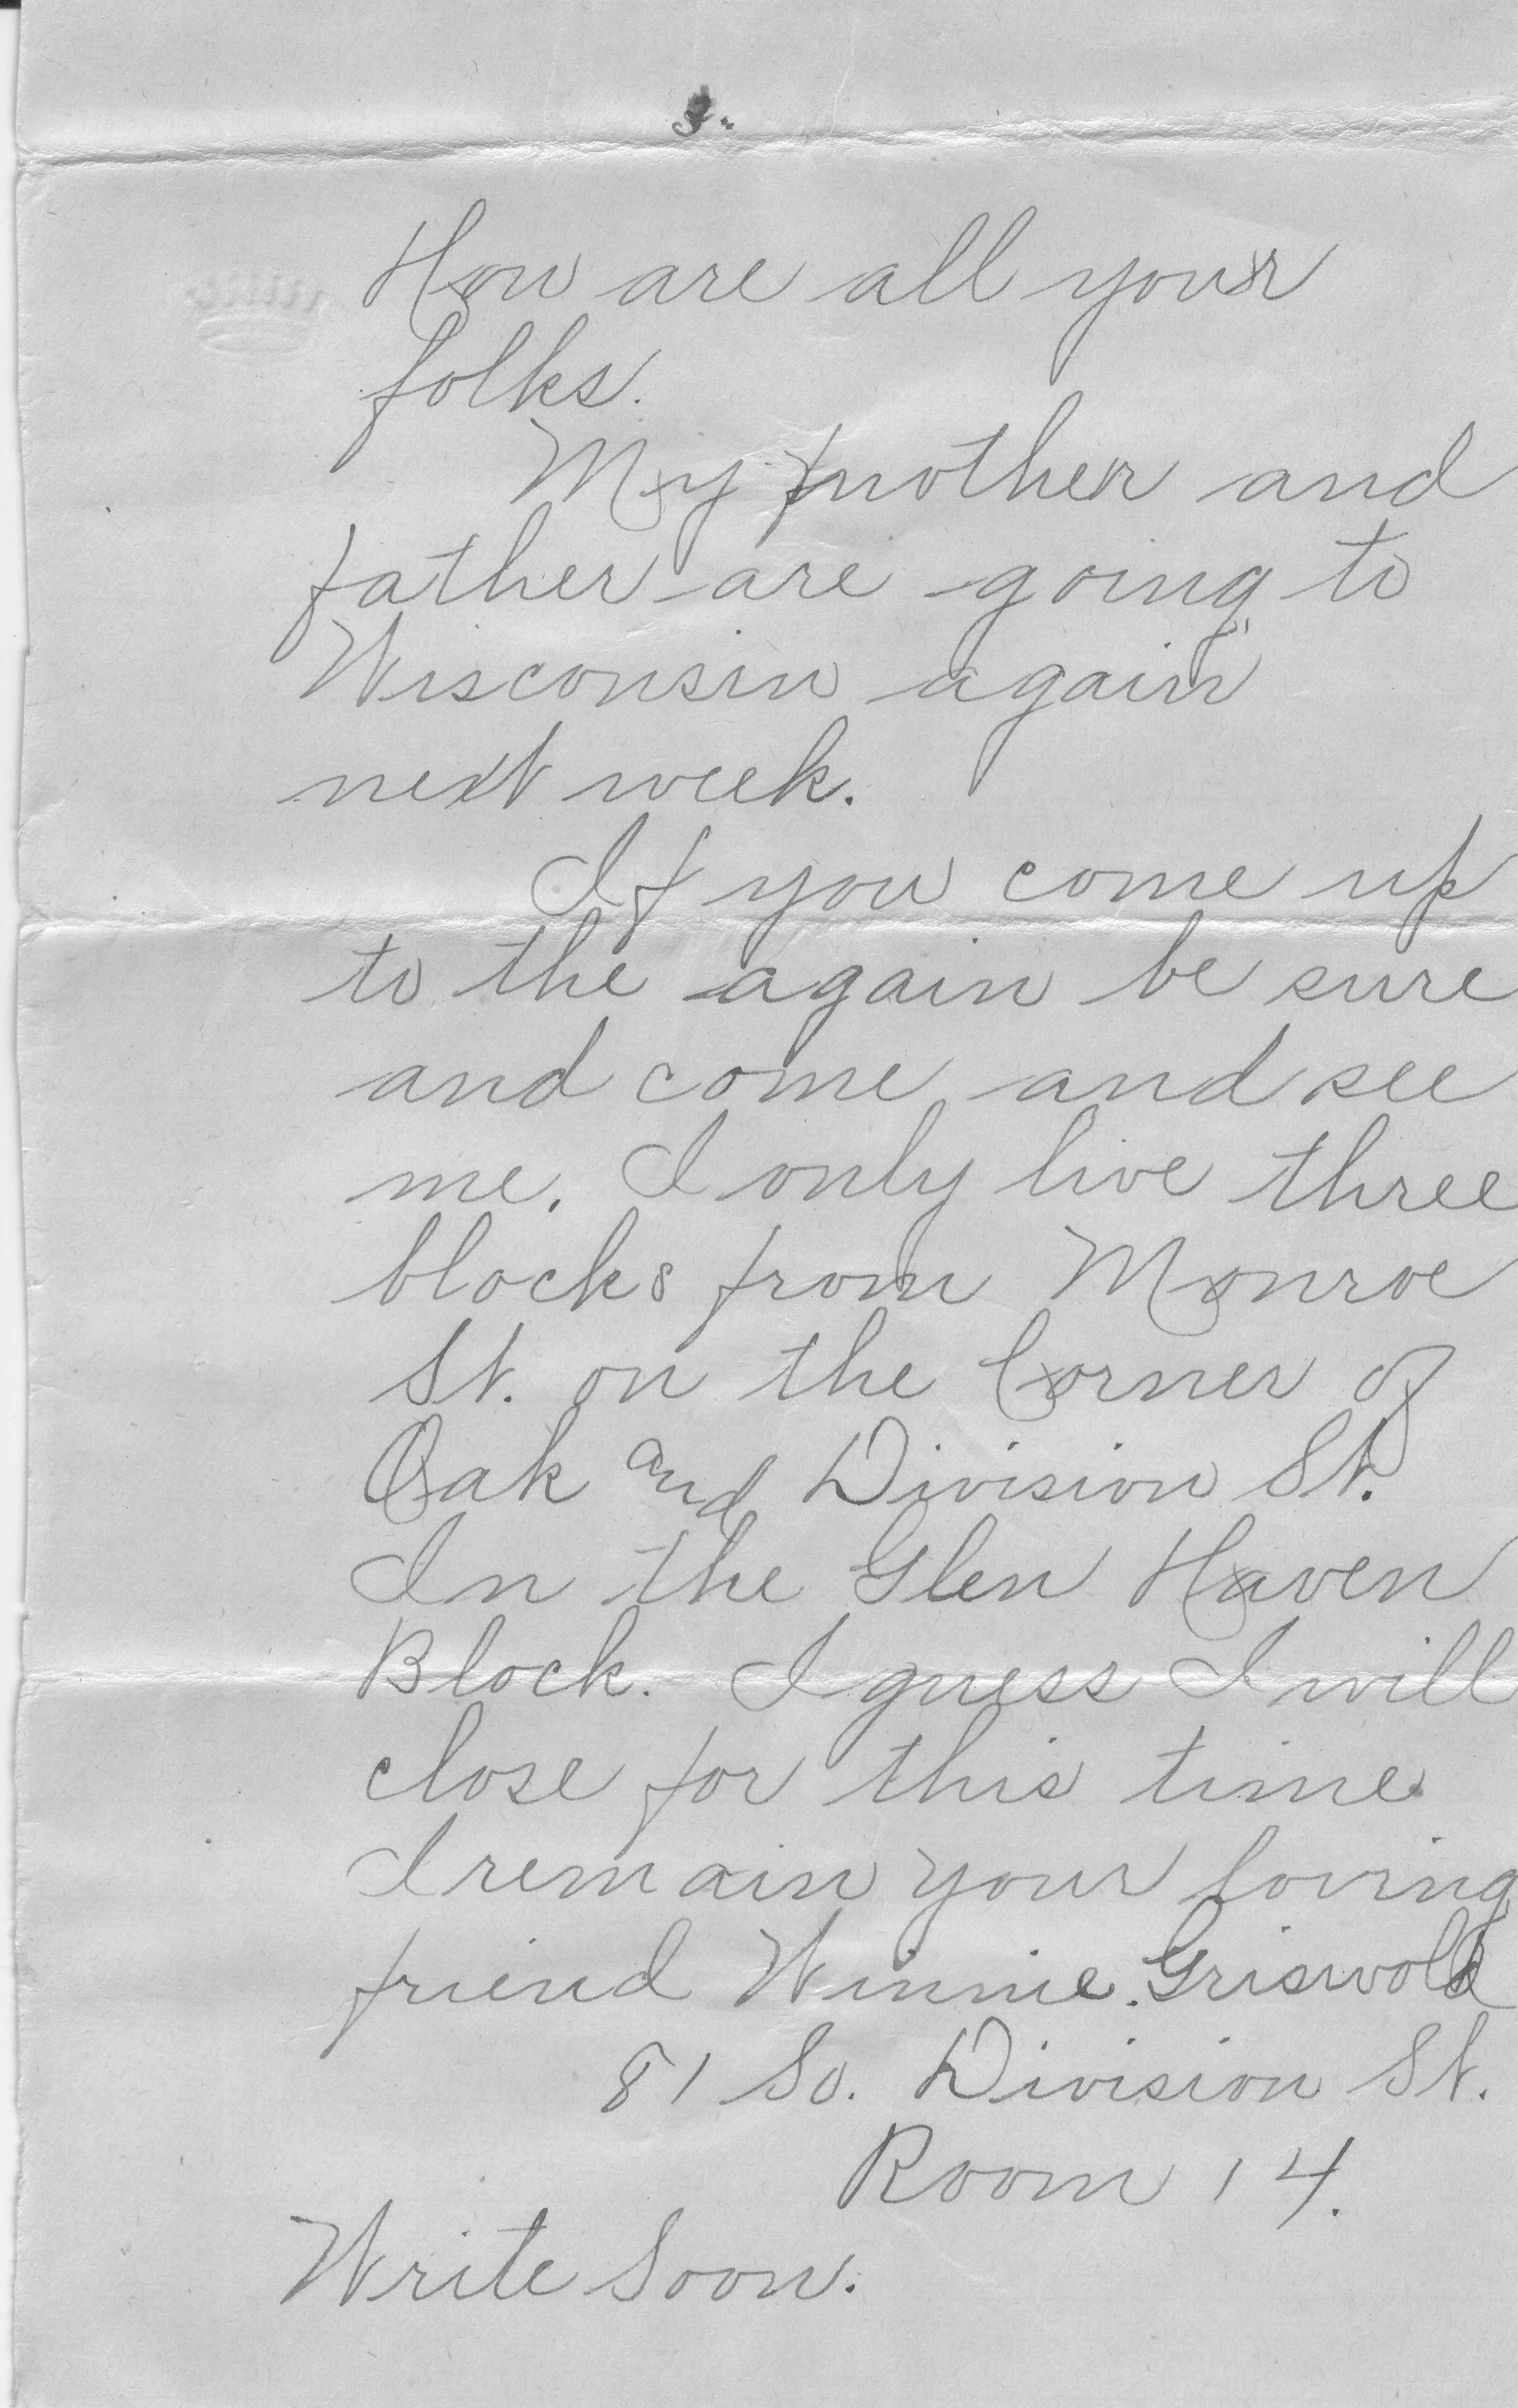 3.
How are all your
folks.
My mother and
father are going to
Wisconsin again
next week.
If you come up
to the again be sure
and come and see
me. I only live three
blocks from Monroe
St. on the Corner of
Oak and Division St.
In the Glen Haven
Block. I guess I will
close for this time
I remain your loving
friend Winnie. Griswold
81 So. Division St.
Room 14.
Write Soon.